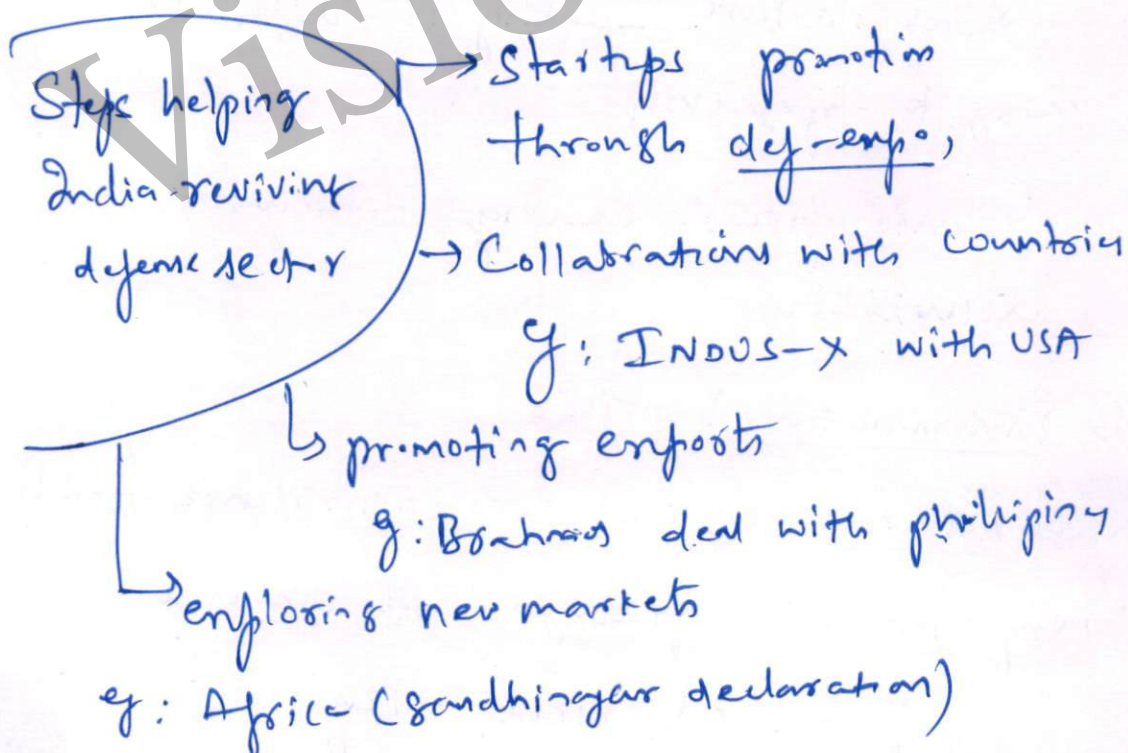 Visio
Steps helping
India reviving
defense sector
→ Startups promotion
through def-expo,
→ Collabrations with countries
eg: INDUS-X with USA
↳ promoting exports
eg: Brahmos deal with philipines
→ exploring new markets
eg: Africa (gandhinagar declaration)